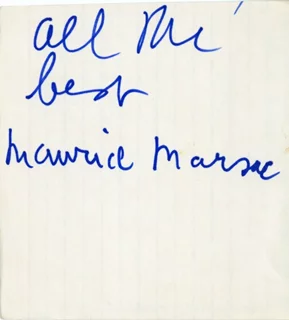 all the
best
Maurice Marsac